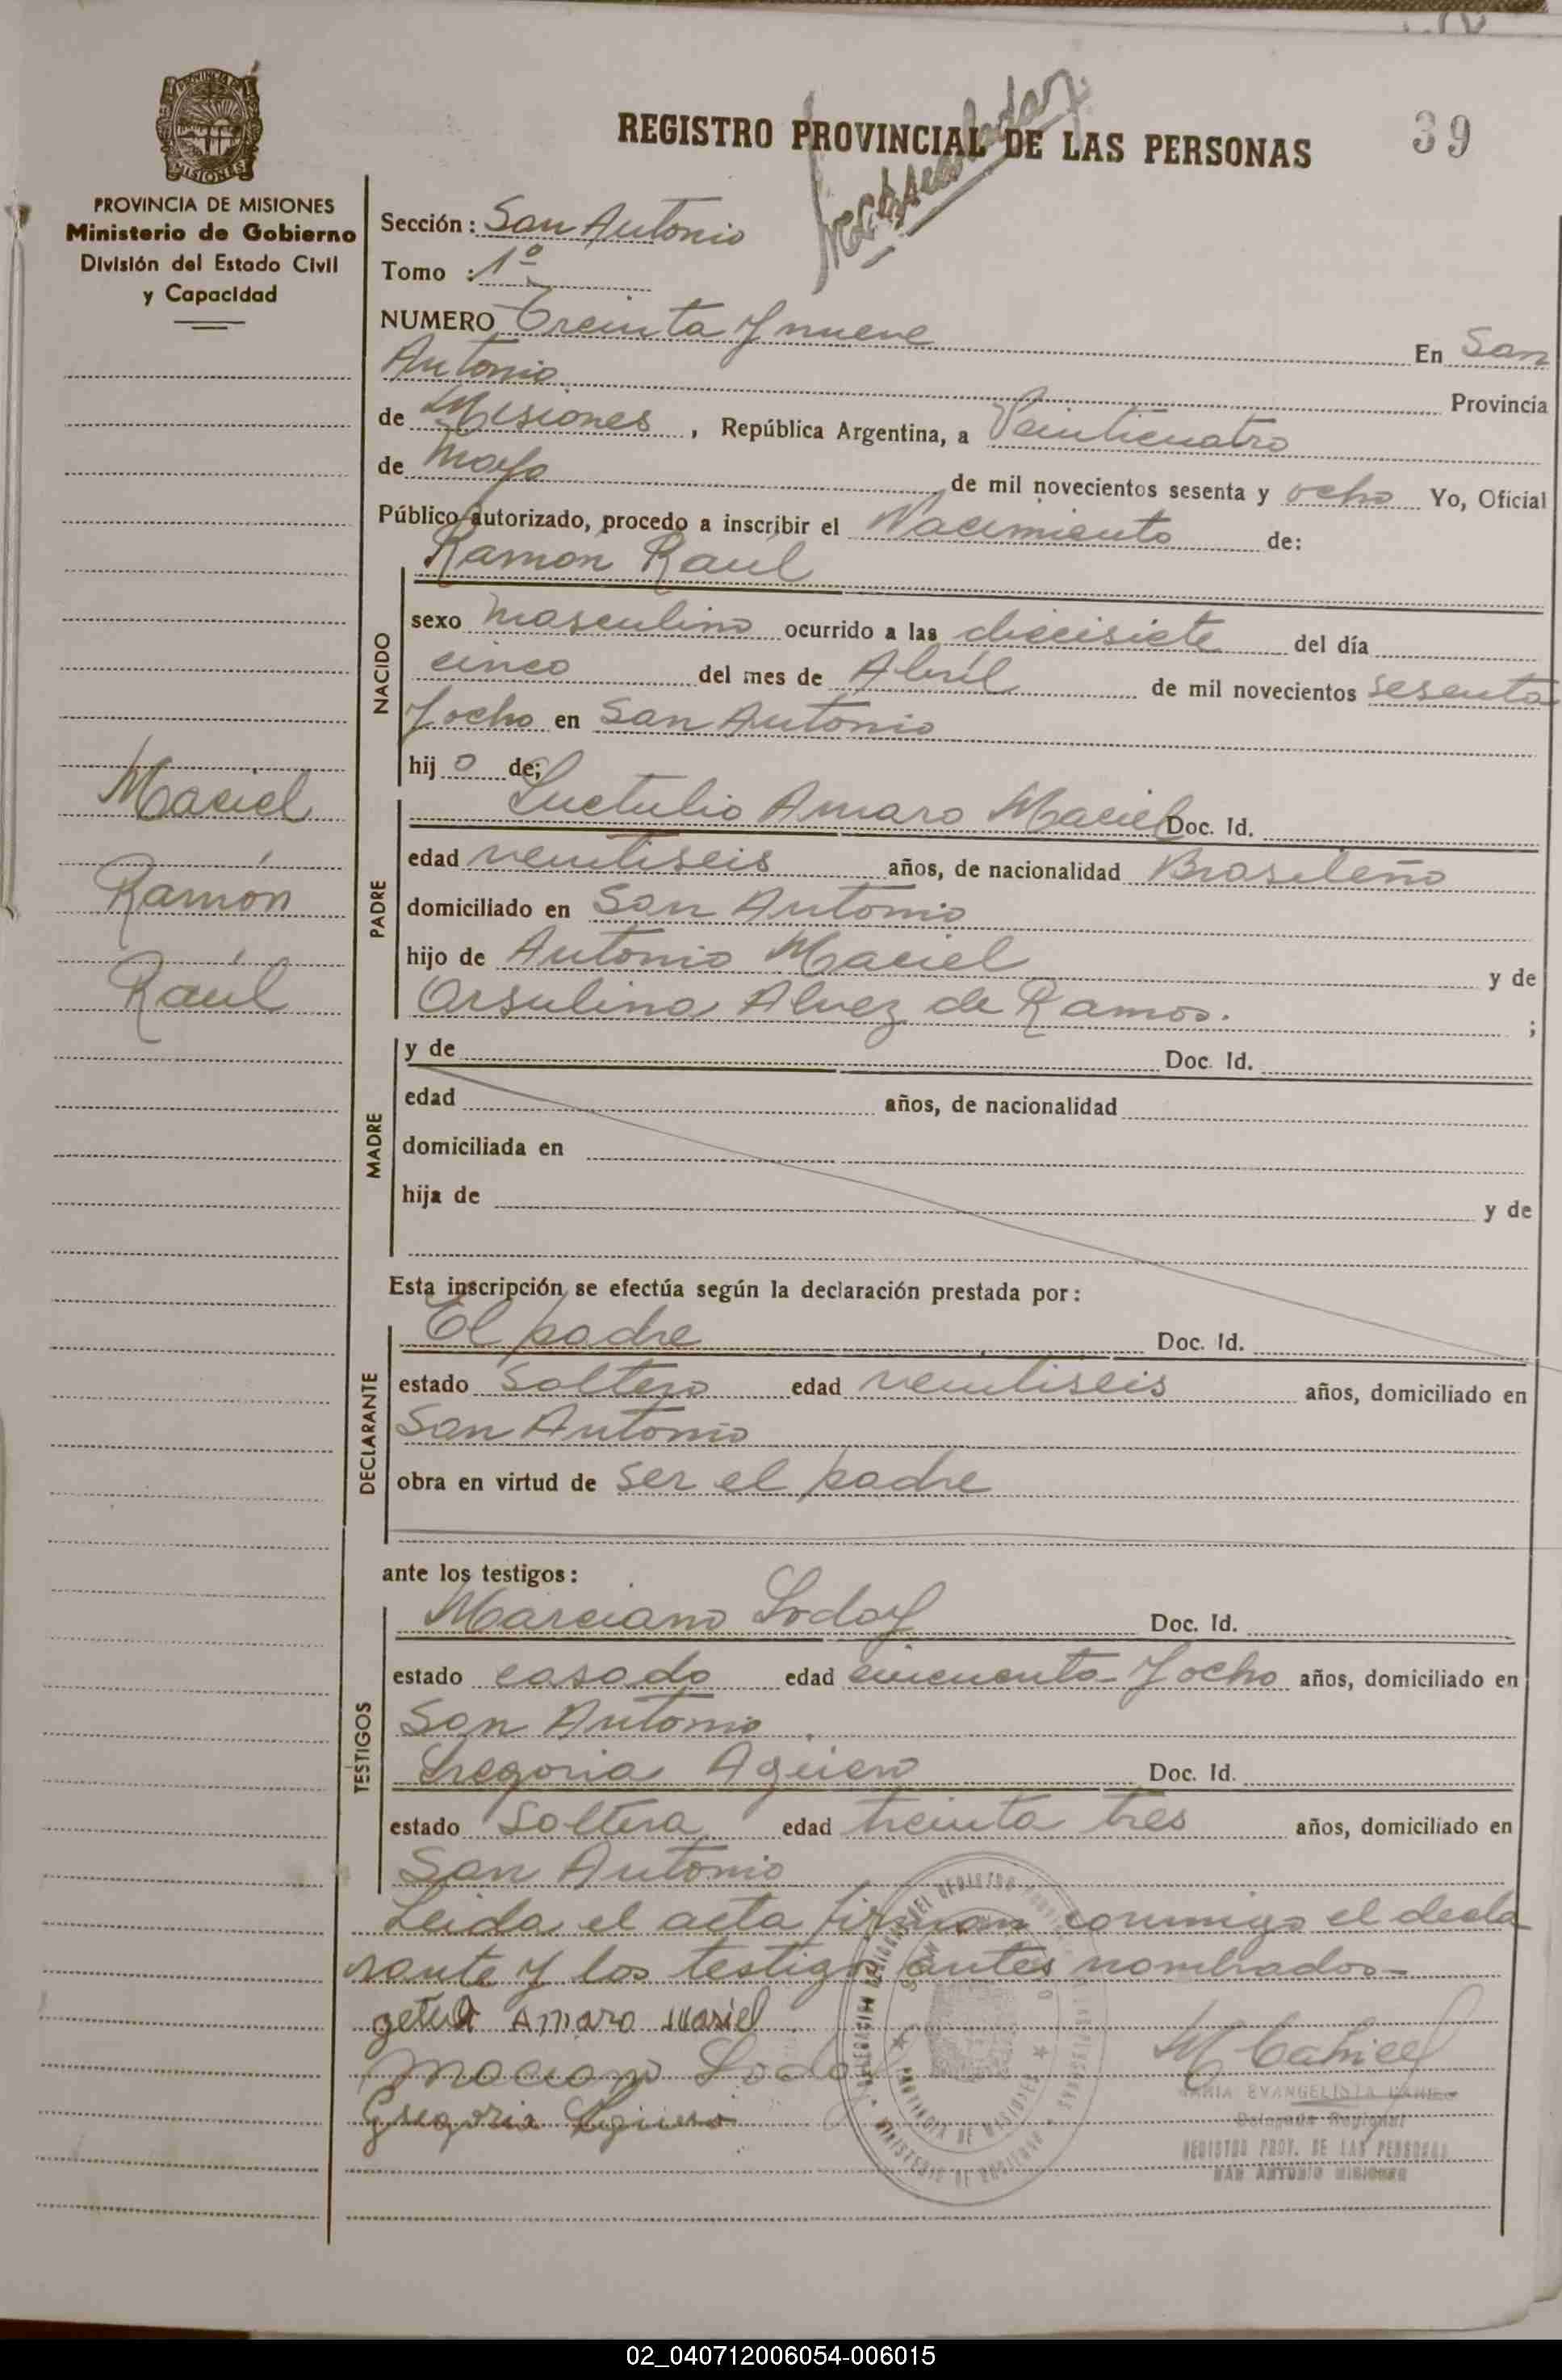 REGISTRO PROVINCIAL DE LAS PERSONAS
39
PROVINCIA DE MISIONES
Ministerio de Gobierno
División del Estado Civil
y Capacidad
Maciel
Ramón
Raúl
Sección : San Antonio
Tomo : 1º
NUMERO Treinta y nueve En San
Antonio Provincia
de Misiones , República Argentina, a Veinticuatro
de Mayo de mil novecientos sesenta y ocho Yo, Oficial
Público autorizado, procedo a inscribir el Nacimiento de:
NACIDO
Ramón Raúl
sexo masculino ocurrido a las diecisiete del día
cinco del mes de Abril de mil novecientos sesenta
y ocho en San Antonio
hij o de;
PADRE
Amaro Maciel Doc. Id.
edad veintiseis años, de nacionalidad Brasileño
domiciliado en San Antonio
hijo de Antonio Maciel y de
Orsulina Alvez de Ramos. ;
MADRE
y de Doc. Id.
edad años, de nacionalidad
domiciliada en
hija de y de
Esta inscripción se efectúa según la declaración prestada por :
DECLARANTE
El padre Doc. Id.
estado Soltero edad veintiseis años, domiciliado en
San Antonio
obra en virtud de ser el padre
ante los testigos :
TESTIGOS
Marciano Godoy Doc. Id.
estado casado edad cincuenta y ocho años, domiciliado en
San Antonio
Gregoria Agüero Doc. Id.
estado Soltera edad treinta tres años, domiciliado en
San Antonio
Leida el acta firman conmigo el decla
rante y los testigos antes nombrados-
Amaro Masiel
Godoy
Gregoria Agüero
M Cañice
MARIA EVANGELISTA
Delegada Regional
REGISTRO PROV. DE LAS PERSONAS
SAN ANTONIO MISIONES
02_040712006054-006015